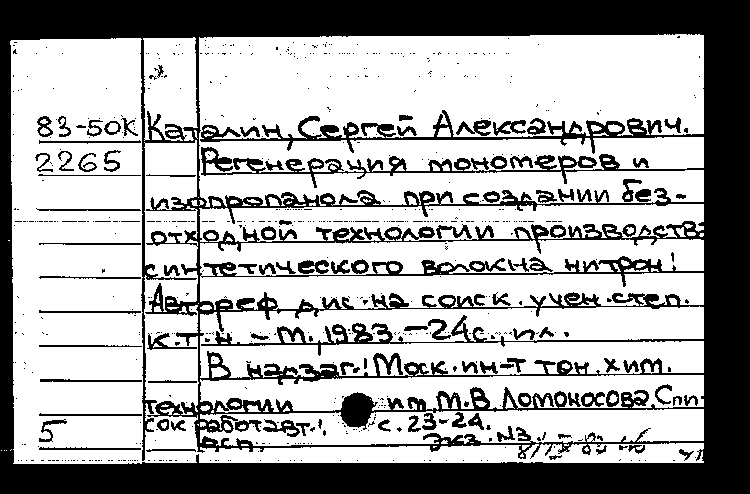 83-50К Каталин, Сергей Александрович.
2265 Регенерация мономеров и
изопропанола при создании без-
отходной технологии производства
синтетического волокна нитрон:
Автореф. дис. на соиск. учен. степ.
к.т.н. - М., 1983. - 24с., ил.
В надзаг.: Моск. ин-т тон. хим.
технологии им. М.В. Ломоносова. Спи-
5 сок работ авт.: с. 23-24.
ДСП. Экз. №3